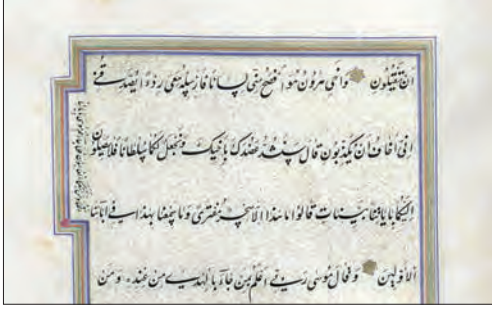 ان يقتلون واخى هرون هو افصح منى لسانا فارسله معى ردءا يصدقنى
انى اخاف ان يكذبون قال سنشد عضدك باخيك ونجعل لكما سلطانا فلا يصلون
اليكما باياتنا بينات قالوا ما هذا الا سحر مفترى وما سمعنا بهذا فى ابائنا
الاولين وقال موسى ربى اعلم بمن جاء بالهدى من عنده ومن